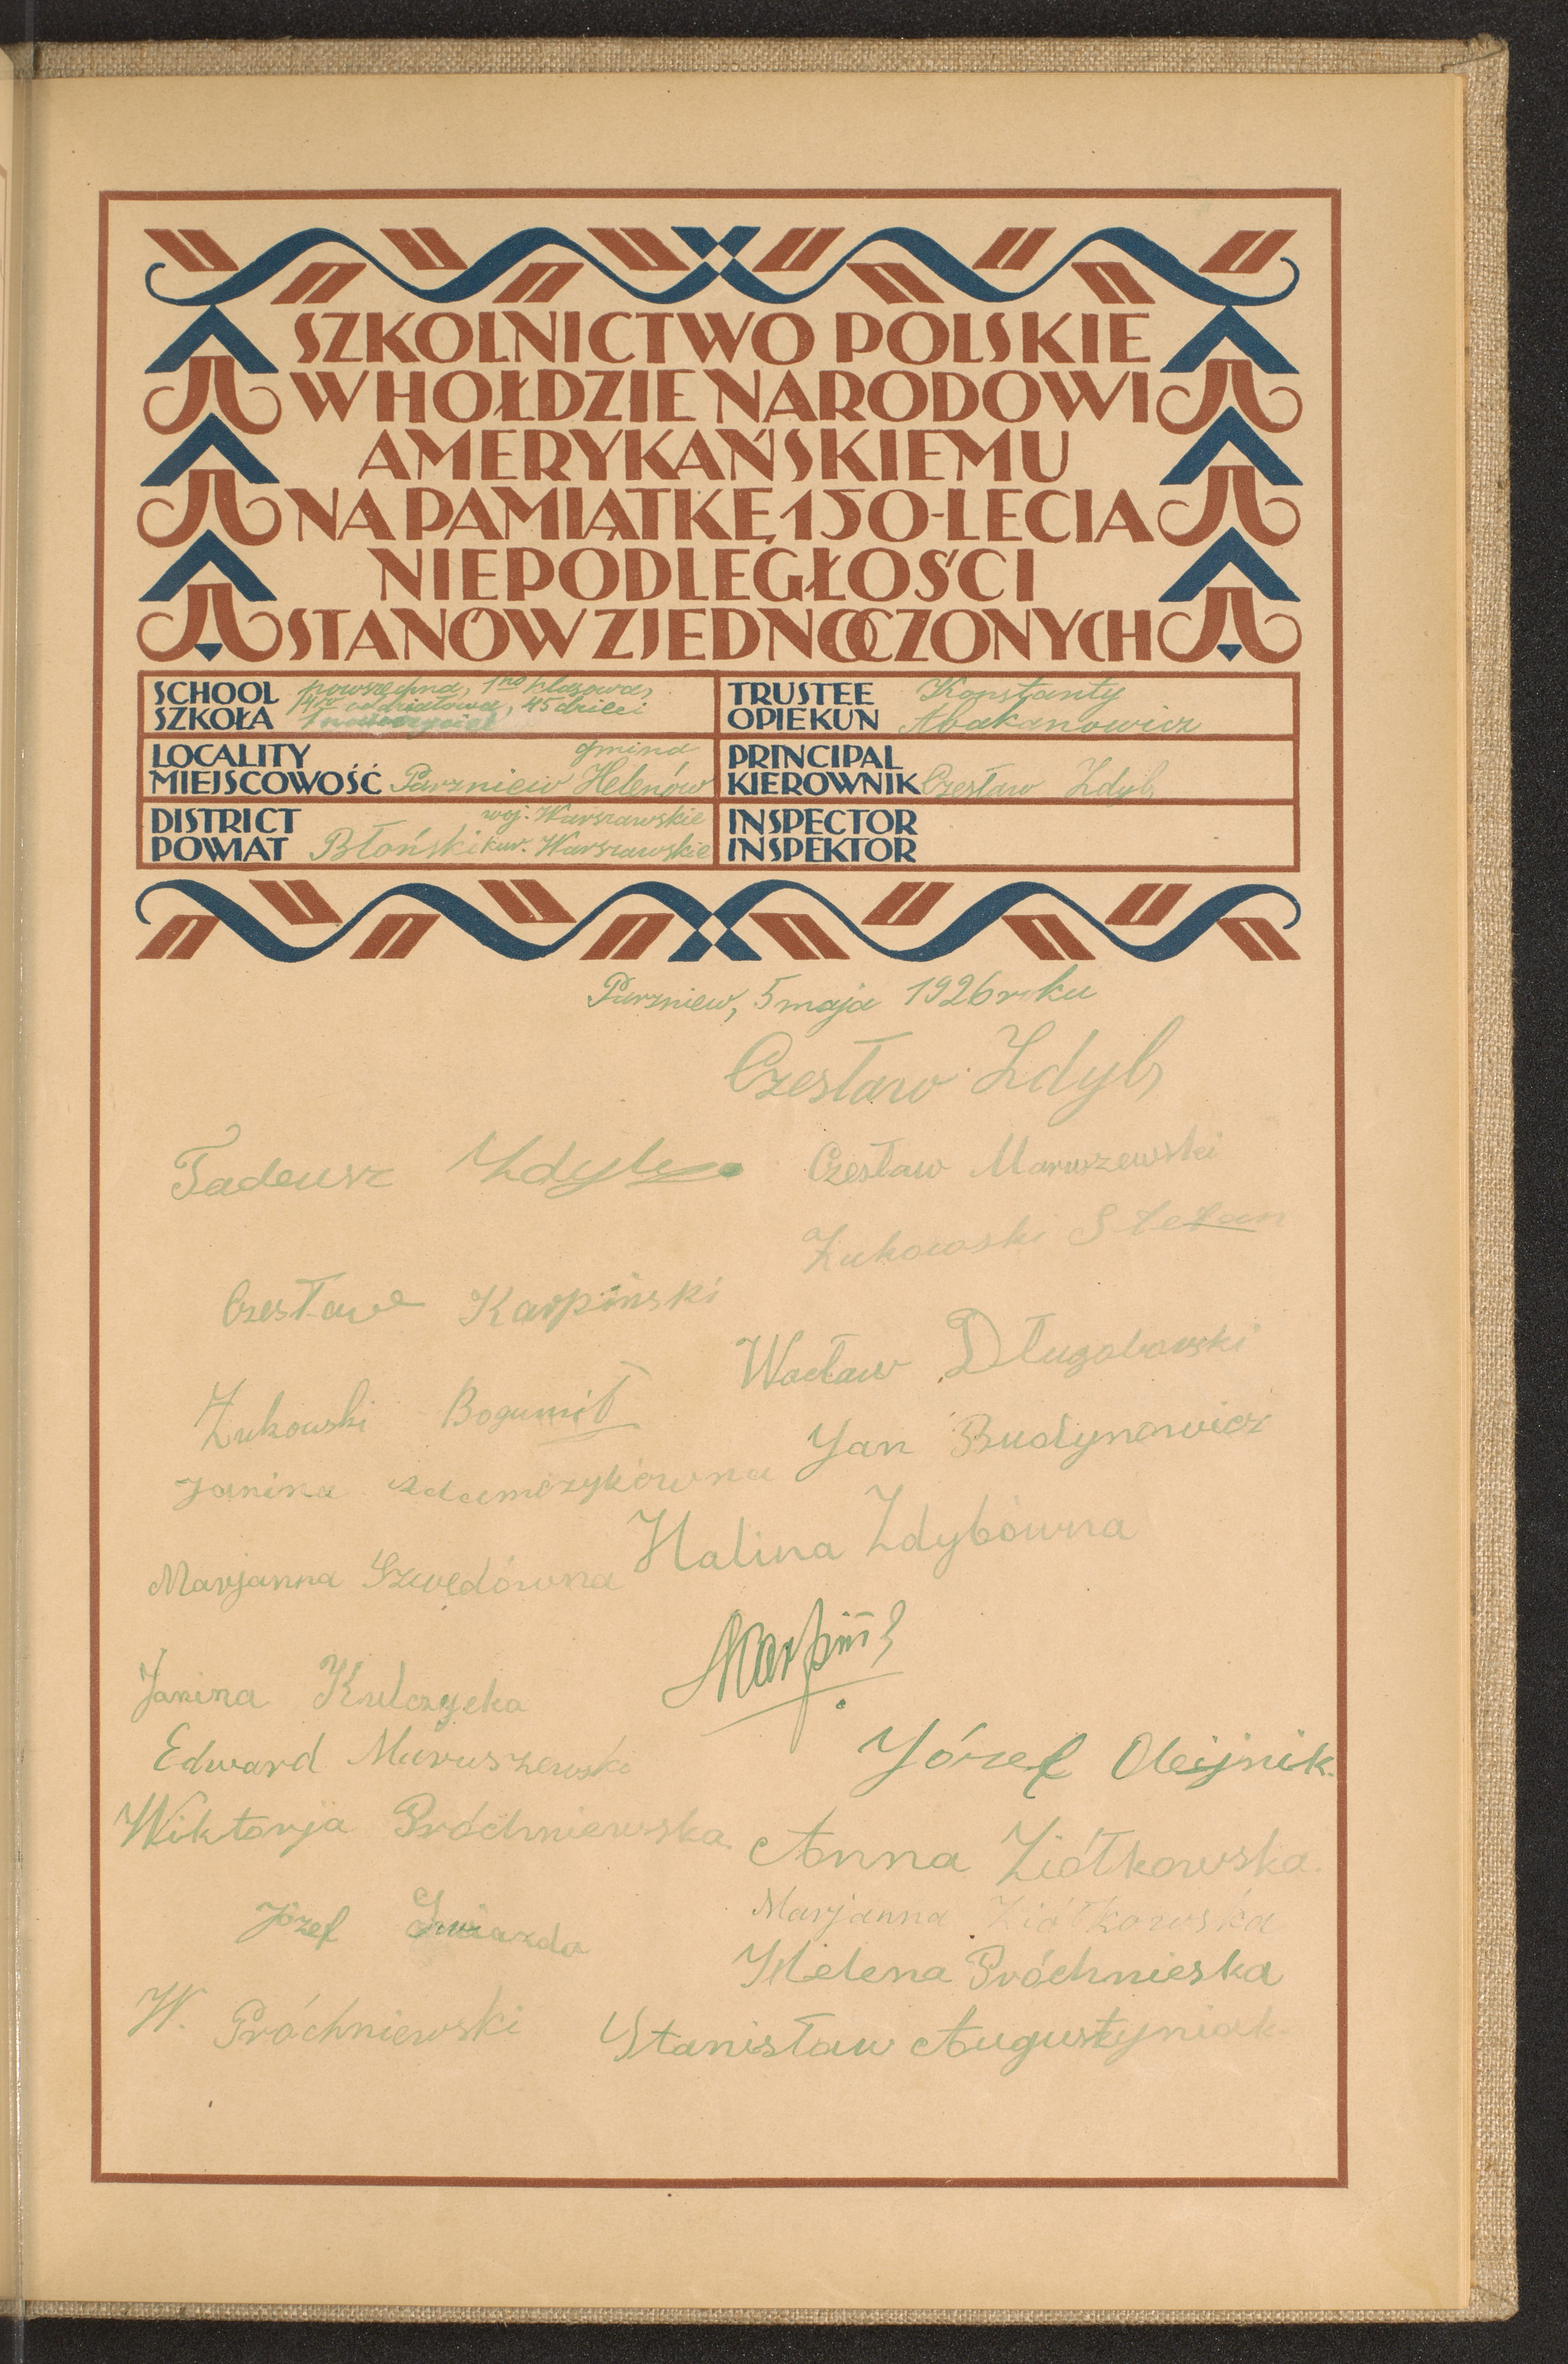 SZKOLNICTWO POLSKIE
W HOŁDZIE NARODOWI
AMERYKAŃSKIEMU
NA PAMIĄTKĘ 150-LECIA
NIEPODLEGŁOŚCI
STANÓW ZJEDNOCZONYCH
SCHOOL
SZKOŁA
powszechna, 1no klasowa,
oddziałowa, 45 dzieci
1 nauczyciel
TRUSTEE
OPIEKUN
Konstanty
Abakanowicz
LOCALITY
MIEJSCOWOŚĆ
gmina
Parzniew Helenów
PRINCIPAL
KIEROWNIK Czesław Zdyb
DISTRICT
POWIAT
woj. Warszawskie
Błoński kur. Warszawskie
INSPECTOR
INSPEKTOR
Parzniew, 5 maja 1926 roku
Czesław Zdyb
Tadeusz Zdyb
Czesław Maruszewski
Żukowski Stefan
Czesława Karpiński
Wacław Długoborski
Żukowski Bogumił
Jan Budynowicz
Janina Adamczykówna
Halina Zdybówna
Marjanna Szwedówna
Janina Kulczycka
Edward Maruszewski
Józef Olejnik.
Wiktorja Próchniewska
Anna Ziółkowska.
Marjanna Ziółkowska
Józef Gwiazda
Helena Próchnieska
W. Próchniewski
Stanisław Augustyniak